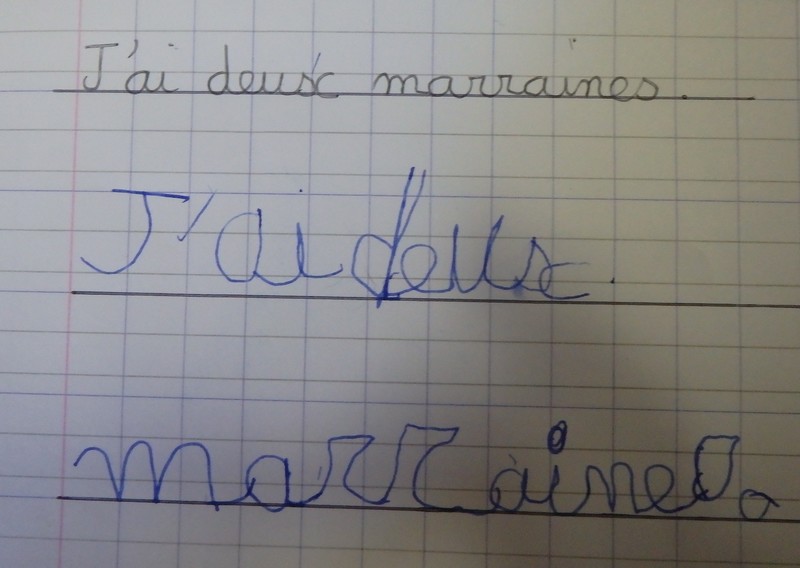 J'ai deux marraines.
J'ai deux.
marraines.